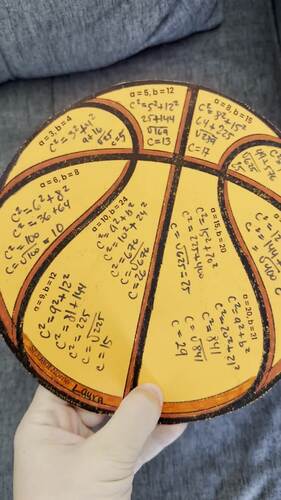 a = 3, b = 4
c²= 3²+4²
9+16
√25
c=5
a = 5, b = 12
c²=5²+12²
25+144
√169
c=13
a = 8, b = 15
c²= 8²+15²
64+225
√289
c=17
49+576
√625
a = 6, b = 8
c²= 6²+8²
c²=36+64
c²=100
c=√100=10
a = 10, b = 24
c²=a²+b²
c²=10²+24²
c²=676
c=√676
c=26
a = 15, b = 20
c²=15²+20²
c²=225+400
c=√625=25
c=√400
a = 9, b = 12
c²= 9²+12²
c²= 81+144
c²= 225
c=√225
c= 15
a = 20, b = 21
c²=a²+b²
c²=20²+21²
c²=841
c=√841
c= 29
Layra